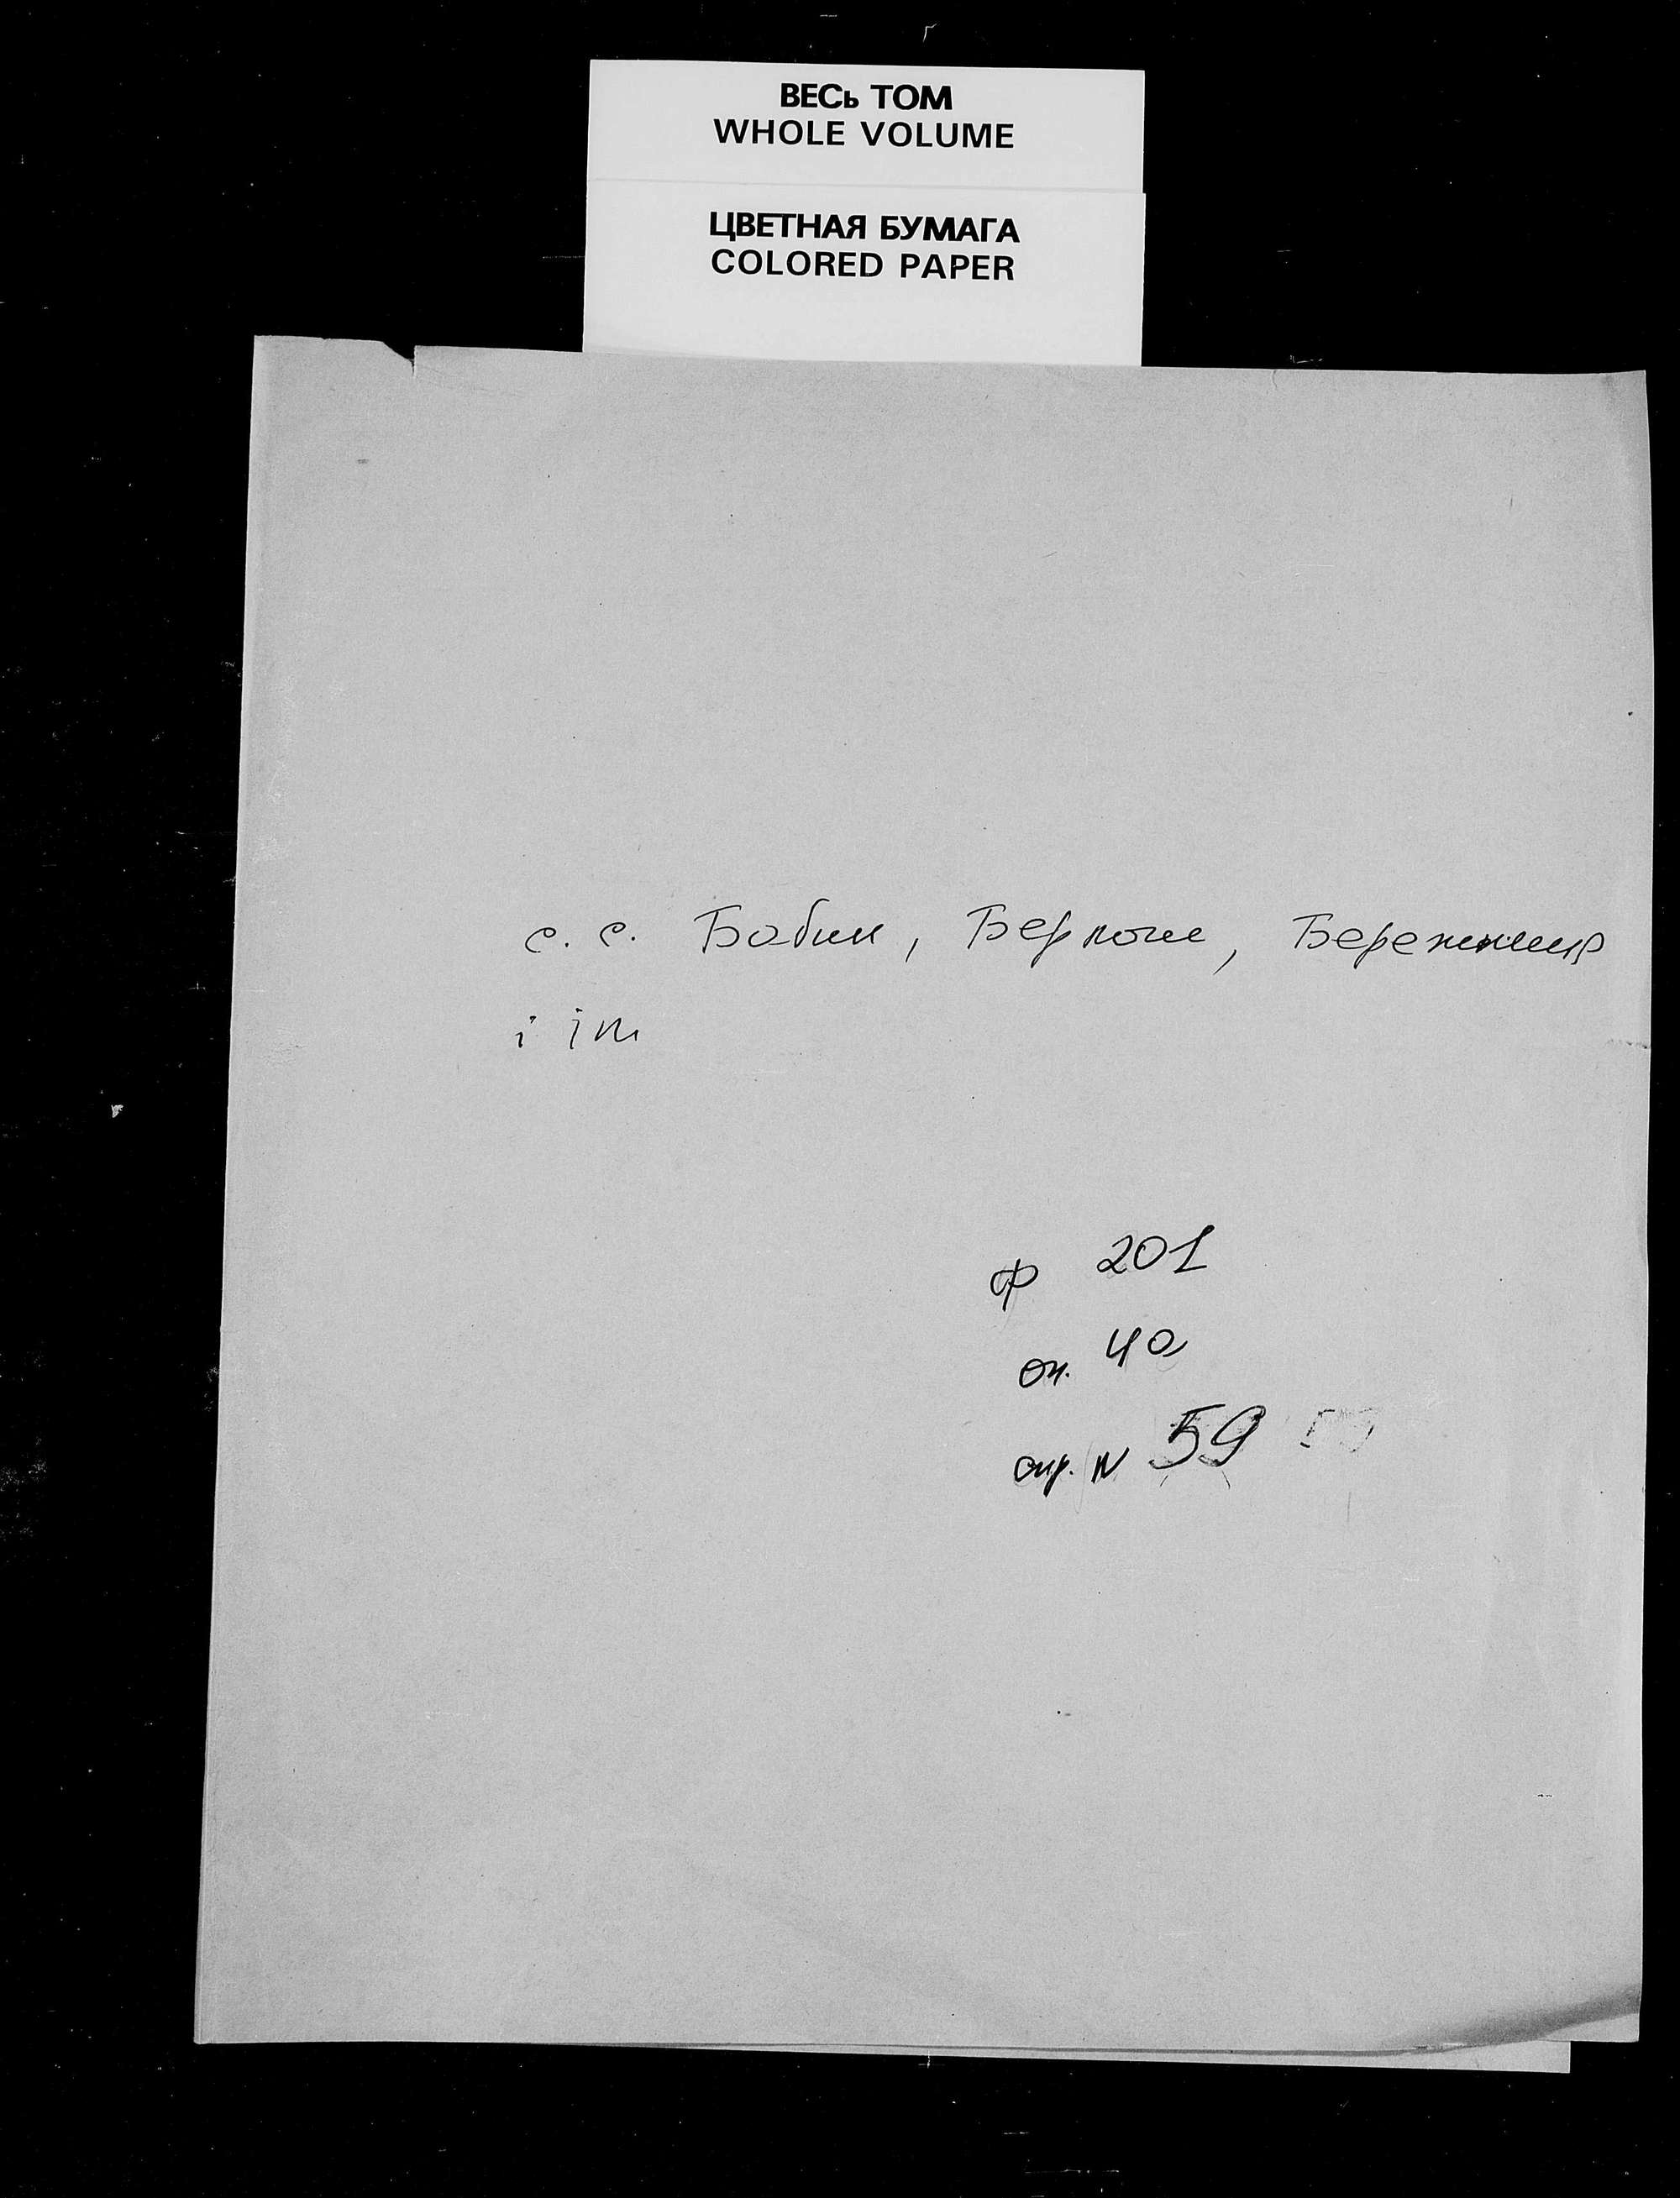 ВЕСЬ ТОМ
WHOLE VOLUME
ЦВЕТНАЯ БУМАГА
COLORED PAPER
с. с. Бабин, Берлоги, Бережниця
і ін
ф 201
оп. 4а
спр. N 59